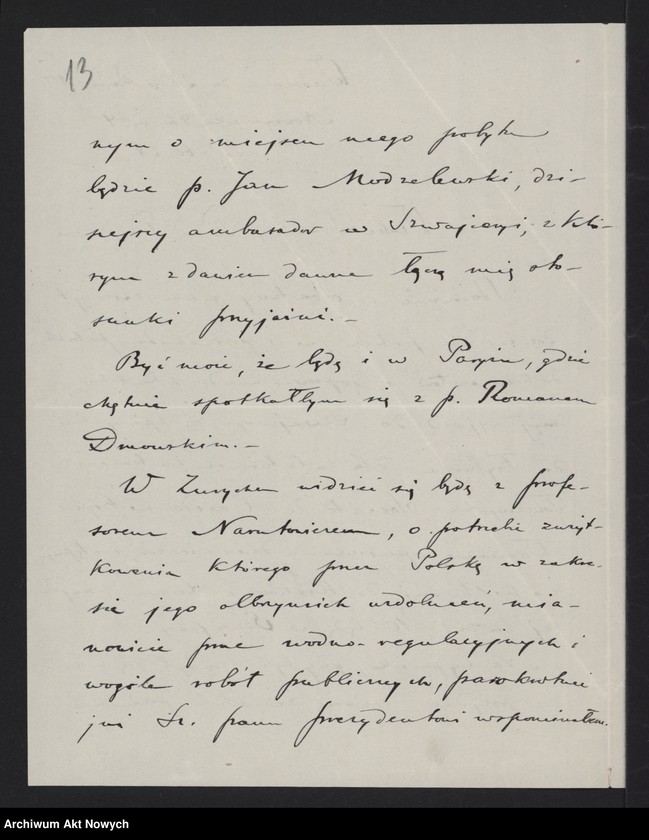 13
nym o miejscu mego pobytu
będzie p. Jan Modzelewski, dzi-
siejszy ambasador w Szwajcaryi, z któ-
rym z dawien dawna łączą mię sto-
sunki przyjaźni.-
Być może, że będę i w Paryżu, gdzie
chętnie spotkałbym się z p. Romanem
Dmowskim.-
W Zurychu widzieć się będę z profe-
sorem Narutowiczem, o potrzebie zużyt-
kowania którego przez Polskę w zakre-
sie jego olbrzymich uzdolnień, mia-
nowicie prac wodno-regulacyjnych i
wogóle robót publicznych, parokrotnie
już Sz. panu Prezydentowi wspominałem.
Archiwum Akt Nowych